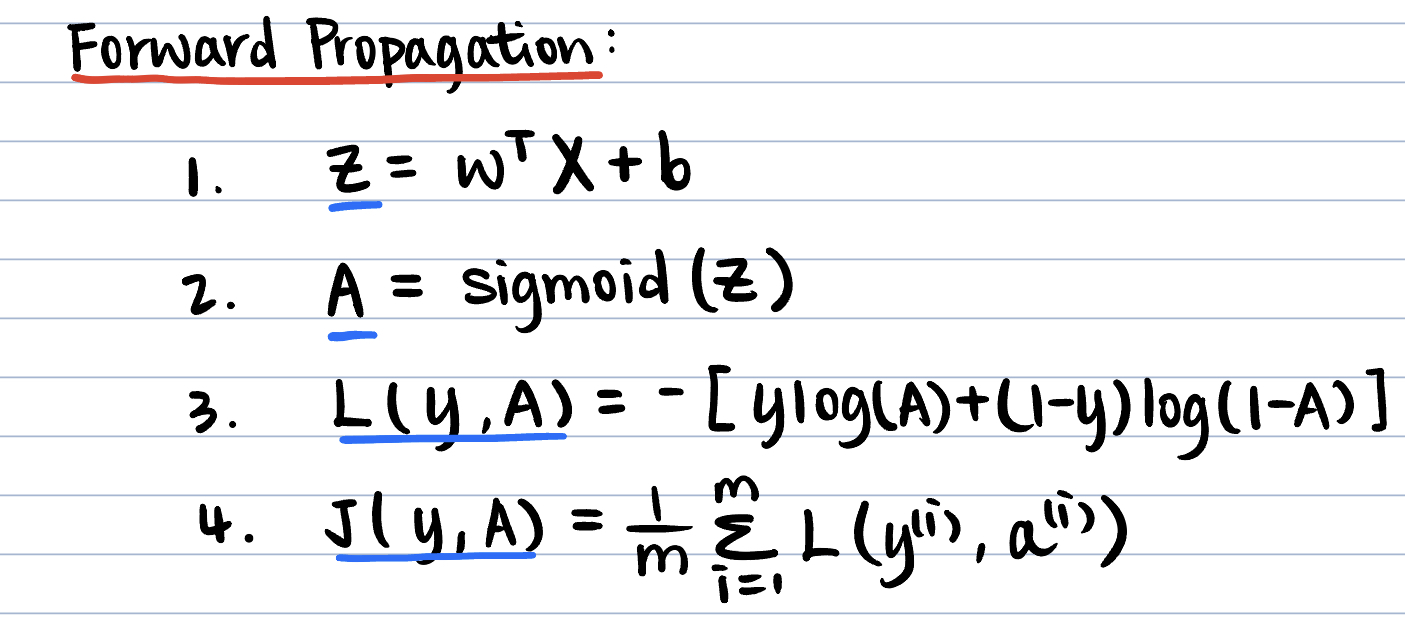 Forward Propagation:
1. Z = wᵀX + b
2. A = sigmoid(Z)
3. L(y, A) = -[ylog(A)+(1-y)log(1-A)]
4. J(y, A) = 1/m ∑ᵢ₌₁ᵐ L(y⁽ⁱ⁾, a⁽ⁱ⁾)